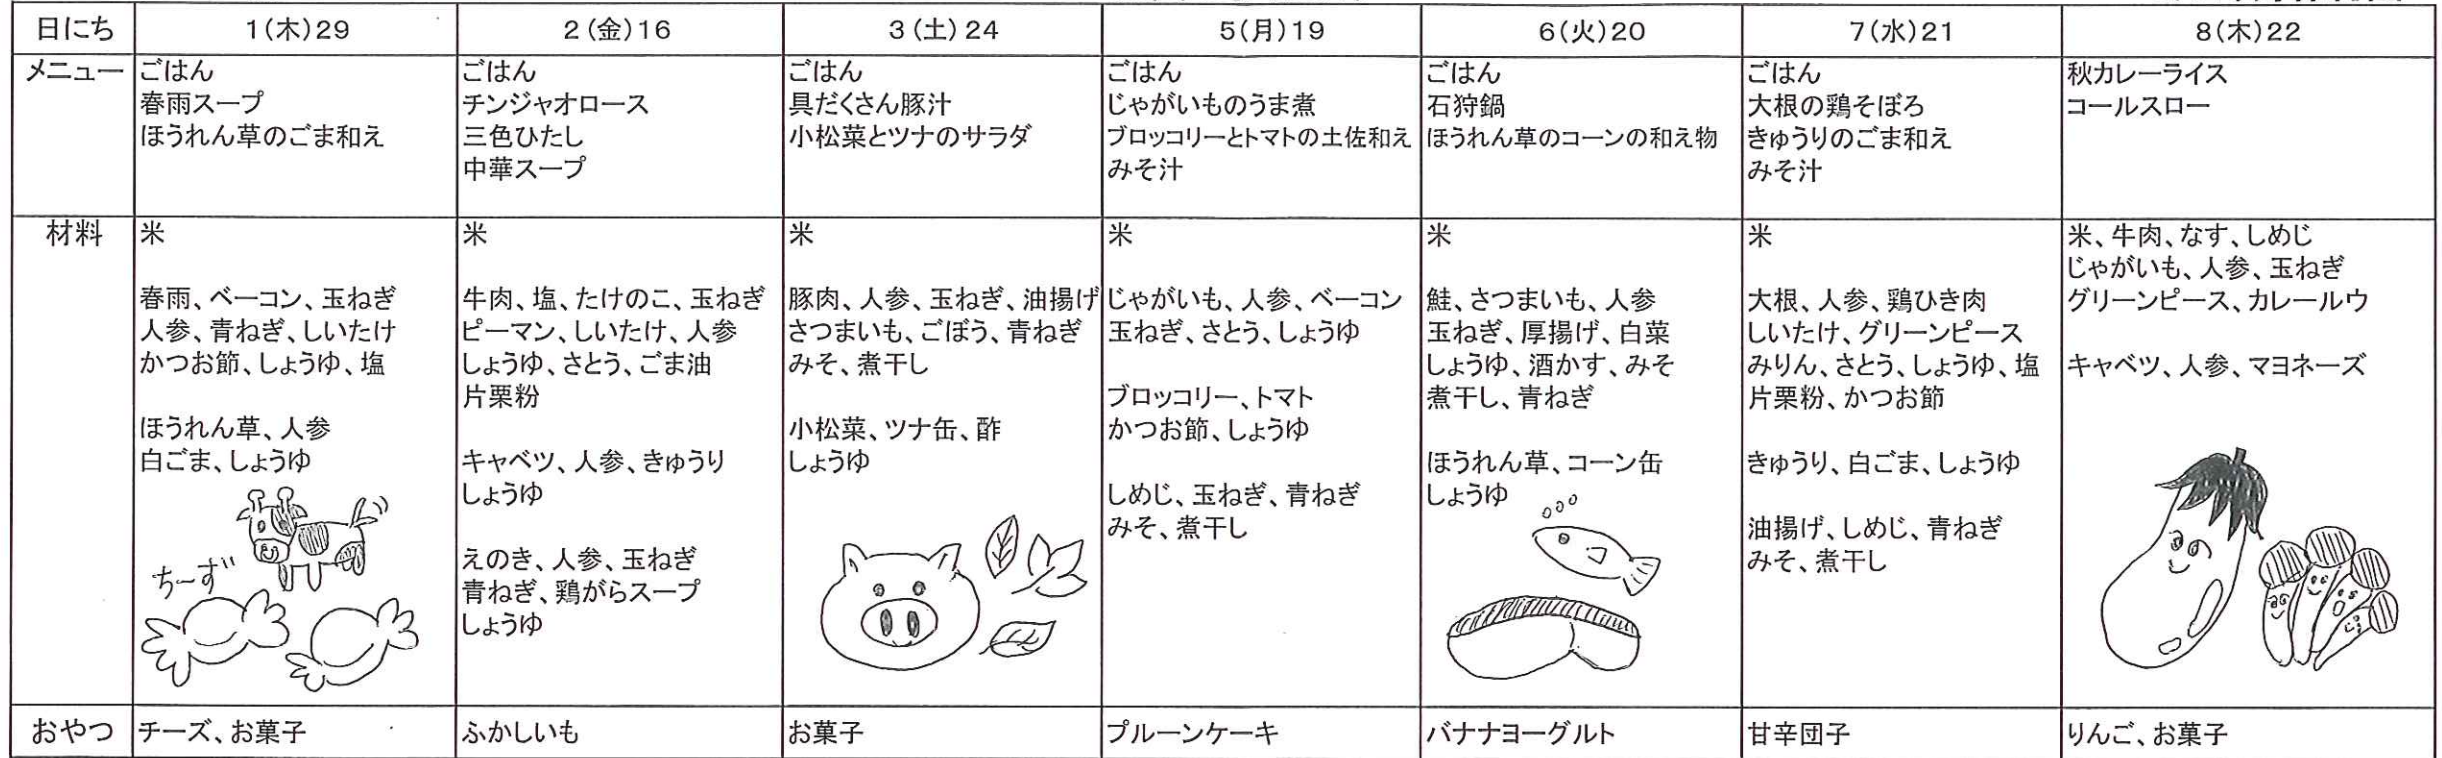 日にち
1(木)29
2(金)16
3(土)24
5(月)19
6(火)20
7(水)21
8(木)22
メニュー
ごはん
春雨スープ
ほうれん草のごま和え
ごはん
チンジャオロース
三色ひたし
中華スープ
ごはん
具だくさん豚汁
小松菜とツナのサラダ
ごはん
じゃがいものうま煮
ブロッコリーとトマトの土佐和え
みそ汁
ごはん
石狩鍋
ほうれん草のコーンの和え物
ごはん
大根の鶏そぼろ
きゅうりのごま和え
みそ汁
秋カレーライス
コールスロー
材料
米
春雨、ベーコン、玉ねぎ
人参、青ねぎ、しいたけ
かつお節、しょうゆ、塩
ほうれん草、人参
白ごま、しょうゆ
ち〜ず
米
牛肉、塩、たけのこ、玉ねぎ
ピーマン、しいたけ、人参
しょうゆ、さとう、ごま油
片栗粉
キャベツ、人参、きゅうり
しょうゆ
えのき、人参、玉ねぎ
青ねぎ、鶏がらスープ
しょうゆ
米
豚肉、人参、玉ねぎ、油揚げ
さつまいも、ごぼう、青ねぎ
みそ、煮干し
小松菜、ツナ缶、酢
しょうゆ
米
じゃがいも、人参、ベーコン
玉ねぎ、さとう、しょうゆ
ブロッコリー、トマト
かつお節、しょうゆ
しめじ、玉ねぎ、青ねぎ
みそ、煮干し
米
鮭、さつまいも、人参
玉ねぎ、厚揚げ、白菜
しょうゆ、酒かす、みそ
煮干し、青ねぎ
ほうれん草、コーン缶
しょうゆ
米
大根、人参、鶏ひき肉
しいたけ、グリーンピース
みりん、さとう、しょうゆ、塩
片栗粉、かつお節
きゅうり、白ごま、しょうゆ
油揚げ、しめじ、青ねぎ
みそ、煮干し
米、牛肉、なす、しめじ
じゃがいも、人参、玉ねぎ
グリーンピース、カレールウ
キャベツ、人参、マヨネーズ
おやつ
チーズ、お菓子
ふかしいも
お菓子
プルーンケーキ
バナナヨーグルト
甘辛団子
りんご、お菓子